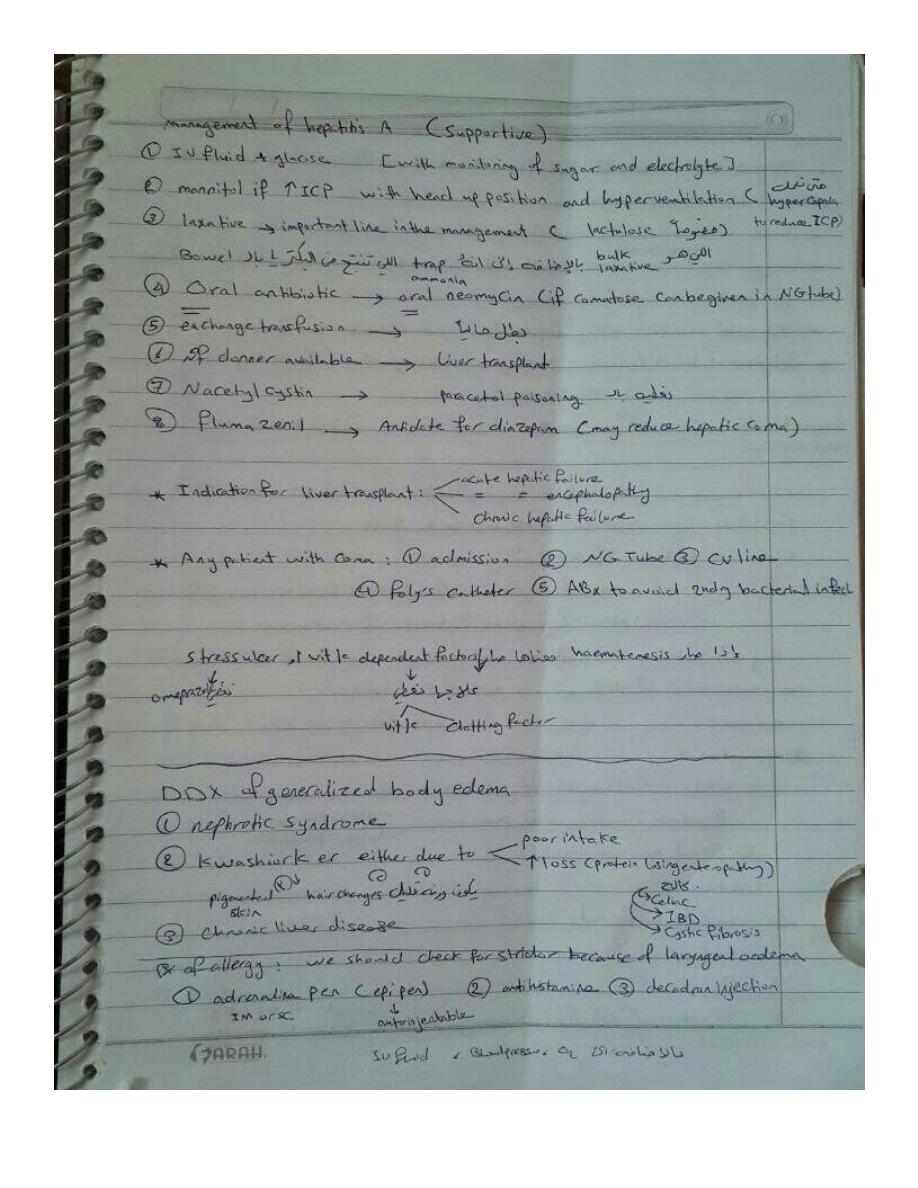 management of hepatitis A (supportive)
① IV fluid + glucose [with monitoring of sugar and electrolyte]
② mannitol if ↑ ICP with head up position and hyperventilation (
hypercapnia
to reduce ICP)
③ laxative → important line in the management ( lactulose
Bowel بالإضافة إلى انه trap ammonia اللي تنتج من البكتريا بال
bulk laxative اللي هو
④ Oral antibiotic → oral neomycin (if comatose can be given in NG tube)
⑤ exchange transfusion → بطل حاليا
⑥ If donner available → liver transplant
⑦ N acetyl cystin → paracetol poisoning نعطيه بال
⑧ flumazenil → Antidote for diazepam (may reduce hepatic coma)
* Indication for liver transplant: acute hepatic failure
= = encephalopathy
chronic hepatic failure
* Any patient with coma: ① admission ② NG Tube ③ CV line
④ Foly's catheter ⑤ ABx to avoid 2ndry bacterial infect
إذا صار haematemesis vit k dependent factor stress ulcer
omeprazol نعطي علاجها نعطي
vit k clotting factor
DDX of generalized body edema
① nephrotic syndrome
② Kwashiorker either due to poor intake
↑ loss (protein losing enteropathy)
pigmented skin hair changes يكون وزنه قليل
Celiac
IBD
Cystic fibrosis
③ chronic liver disease
Rx of allergy: we should check for stridor because of laryngeal oedema
① adrenaline pen (epipen) ② antihistamine ③ decadron injection
IM or SC autoinjectable
SARAH بالإضافة الى O2 , Blood pressure , IV fluid